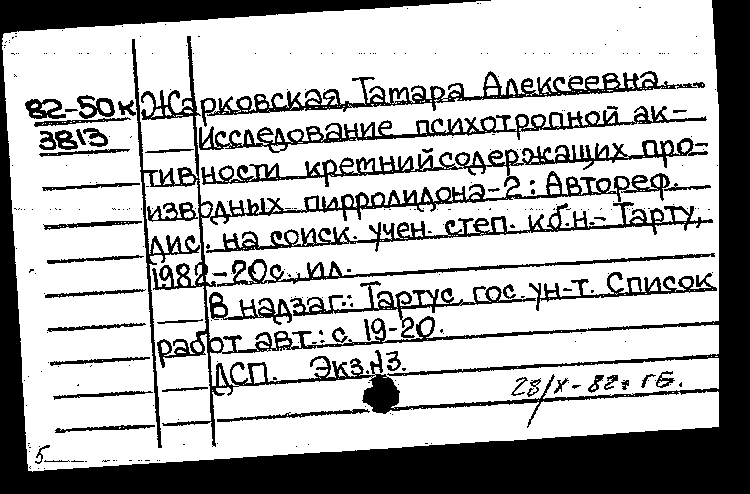 82-50к Жарковская, Тамара Алексеевна.
3813 Исследование психотропной ак-
тивности кремнийсодержащих про-
изводных пирролидона-2: Автореф.
дис. на соиск. учен. степ. к.б.н.- Тарту,
1982.-20с., ил.
В надзаг.: Тартус. гос. ун-т. Список
работ авт.: с. 19-20.
ДСП. Экз.№3.
28/X-82г ГБ.
5